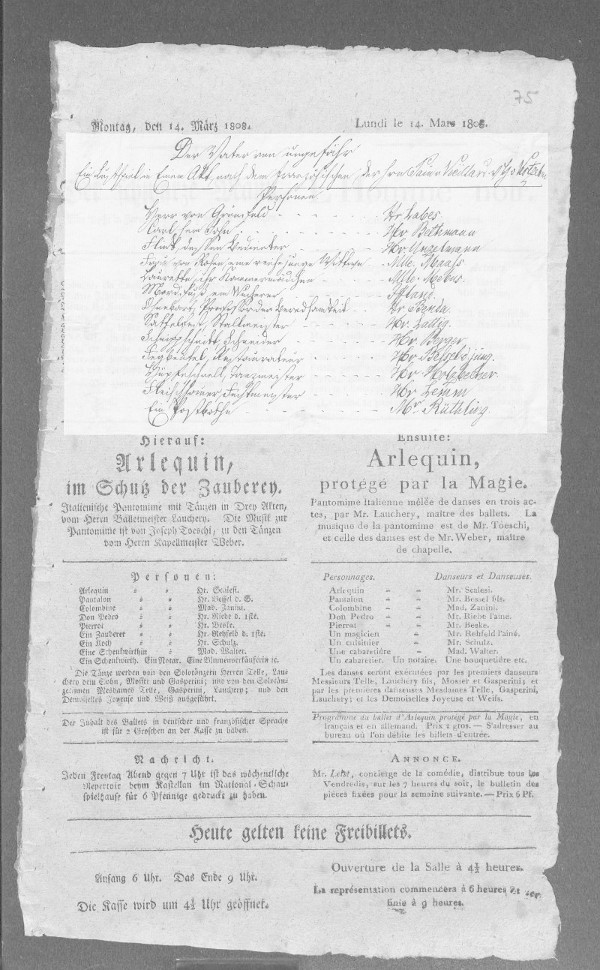 75
Montag, den 14. März 1808.
Lundi le 14. Mars 1808.
Der Vater von ungefähr
Ein Lustspiel in Einem Akt, nach dem Französischen der Hrn
Personen
Herr von Grünfeld - - - - Hr Labes
Carl, sein Sohn - - - - Hr Bethmann
Flink dessen Bedienter - - - - Hr Unzelmann
Frau von Rosen, eine reiche junge Wittwe - Mlle. Maaß
Laurette, ihr Kammermädchen - - - - Mlle.
ein Wucherer - - - - Iffland
Professor der Beredsamkeit - - - - Hr Benda
Sattelfest, Stallmeister - - - - Hr. Labig
Schneider - - - - Hr. Berger
Restaurateur - - - - Hr Beßel jun.
Tanzmeister - - - - Hr
Fechtmeister - - - - Hr Lemm
Ein Postbothe - - - - Mr. Rüthling
Hierauf:
Arlequin,
im Schutz der Zauberey.
Italienische Pantomime mit Tänzen in Drey Akten,
vom Herrn Balletmeister Lauchery. Die Musik zur
Pantomime ist von Joseph Toeschi, zu den Tänzen
vom Herrn Kapellmeister Weber.
Personen:
Arlequin = = Hr. Scalesi.
Pantalon = = Hr. Bessel d. S.
Colombine = = Mad. Zanini.
Don Pedro = = Hr. Riebe d. 1ste.
Pierrot = = Hr. Beske.
Ein Zauderer = = Hr. Rehfeld d. 1ste.
Ein Koch = = Hr. Schulz.
Eine Schenkwirthin = = Mad. Walter.
Ein Schenkwirth. Ein Notar. Eine Blumenverkäuferin ꝛc.
Die Tänze werden von den Solotänzern Herren Telle, Lau-
chery dem Sohn, Moser und Gasperini; wie von den Solotän-
zerinnen Mesdames Telle, Gasperini, Lauchery; und den
Demoiselles Joyeuse und Weiß ausgeführt.
Der Inhalt des Ballets in deutscher und französischer Sprache
ist für 2 Groschen an der Kasse zu haben.
Nachricht.
Jeden Freytag Abend gegen 7 Uhr ist das wöchentliche
Repertoir beym Kastellan im National-Schau-
spielhause für 6 Pfennige gedruckt zu haben.
Ensuite:
Arlequin,
protégé par la Magie.
Pantomime Italienne mêlée de danses en trois ac-
tes, par Mr. Lauchery, maître des ballets. La
musique de la pantomime est de Mr. Toeschi,
et celle des danses est de Mr. Weber, maître
de chapelle.
Personnages. Danseurs et Danseuses.
Arlequin - - Mr. Scalesi.
Pantalon - - Mr. Bessel fils.
Colombine - - Mad. Zanini.
Don Pedro - - Mr. Riebe l'ainé.
Pierrot - - Mr. Beske.
Un magicien - - Mr. Rehfeld l'ainé.
Un cuisinier - - Mr. Schulz.
Une cabaretière - - Mad. Walter.
Un cabaretier. Un notaire. Une bouquetière etc.
Les danses seront exécutées par les premiers danseurs
Messieurs Telle, Lauchery fils, Moser et Gasperini; et
par les premières danseuses Mesdames Telle, Gasperini,
Lauchery; et les Demoiselles Joyeuse et Weiß.
Programme du ballet d'Arlequin protégé par la Magie, en
français et en allemand. Prix 2 gros. — S'adresser au
bureau où l'on débite les billets d'entrée.
Annonce.
Mr. Leist, concierge de la comédie, distribue tous les
Vendredis, sur les 7 heures du soir, le bulletin des
pièces fixées pour la semaine suivante. — Prix 6 Pf.
Heute gelten keine Freibillets.
Anfang 6 Uhr. Das Ende 9 Uhr.
Die Kasse wird um 4½ Uhr geöffnet.
Ouverture de la Salle à 4½ heures.
La représentation commencera à 6 heures et ser
finie à 9 heures.